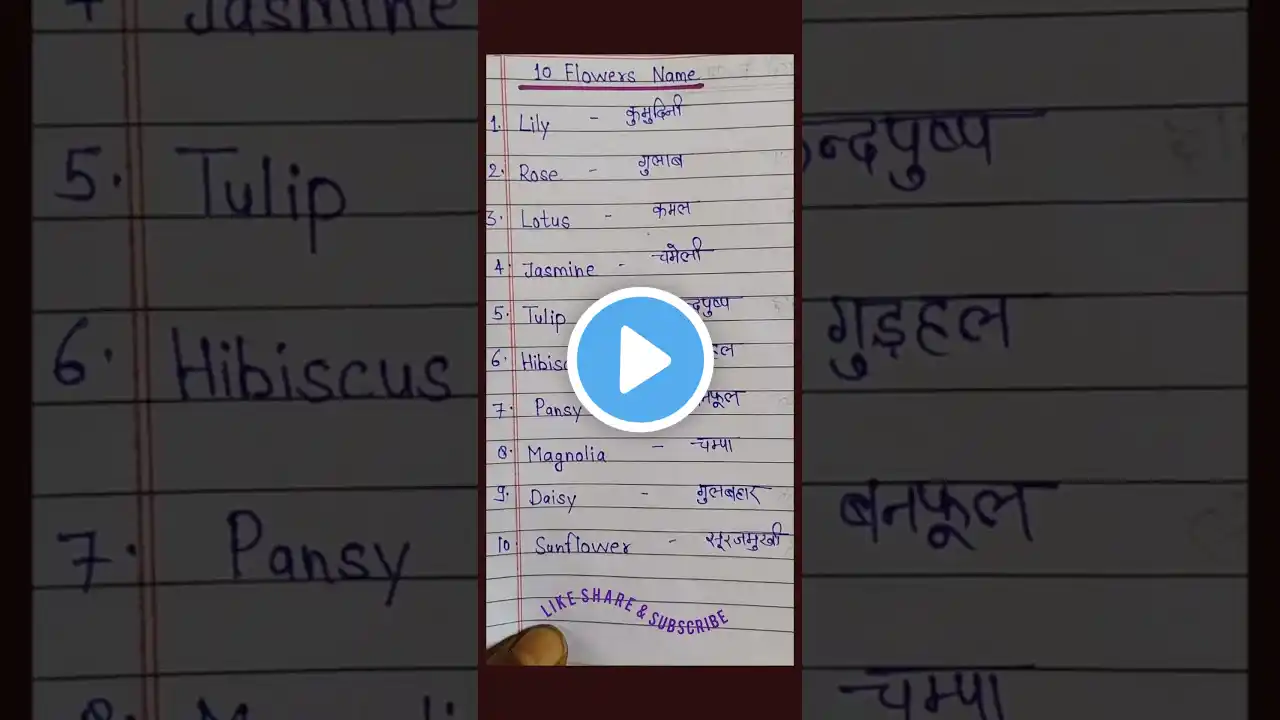 10 Flowers Name
1. Lily - कुमुदिनी
2. Rose - गुलाब
3. Lotus - कमल
4. Jasmine - चमेली
5. Tulip न्दपुष्प
6. Hibiscus गुड़हल
7. Pansy बनफूल
8. Magnolia - चम्पा
9. Daisy - गुलबहार
10 Sunflower - सूरजमुखी
LIKE SHARE & SUBSCRIBE
Jasmine
5. Tulip
न्दपुष्प
6. Hibiscus
गुड़हल
7. Pansy
बनफूल
चम्पा